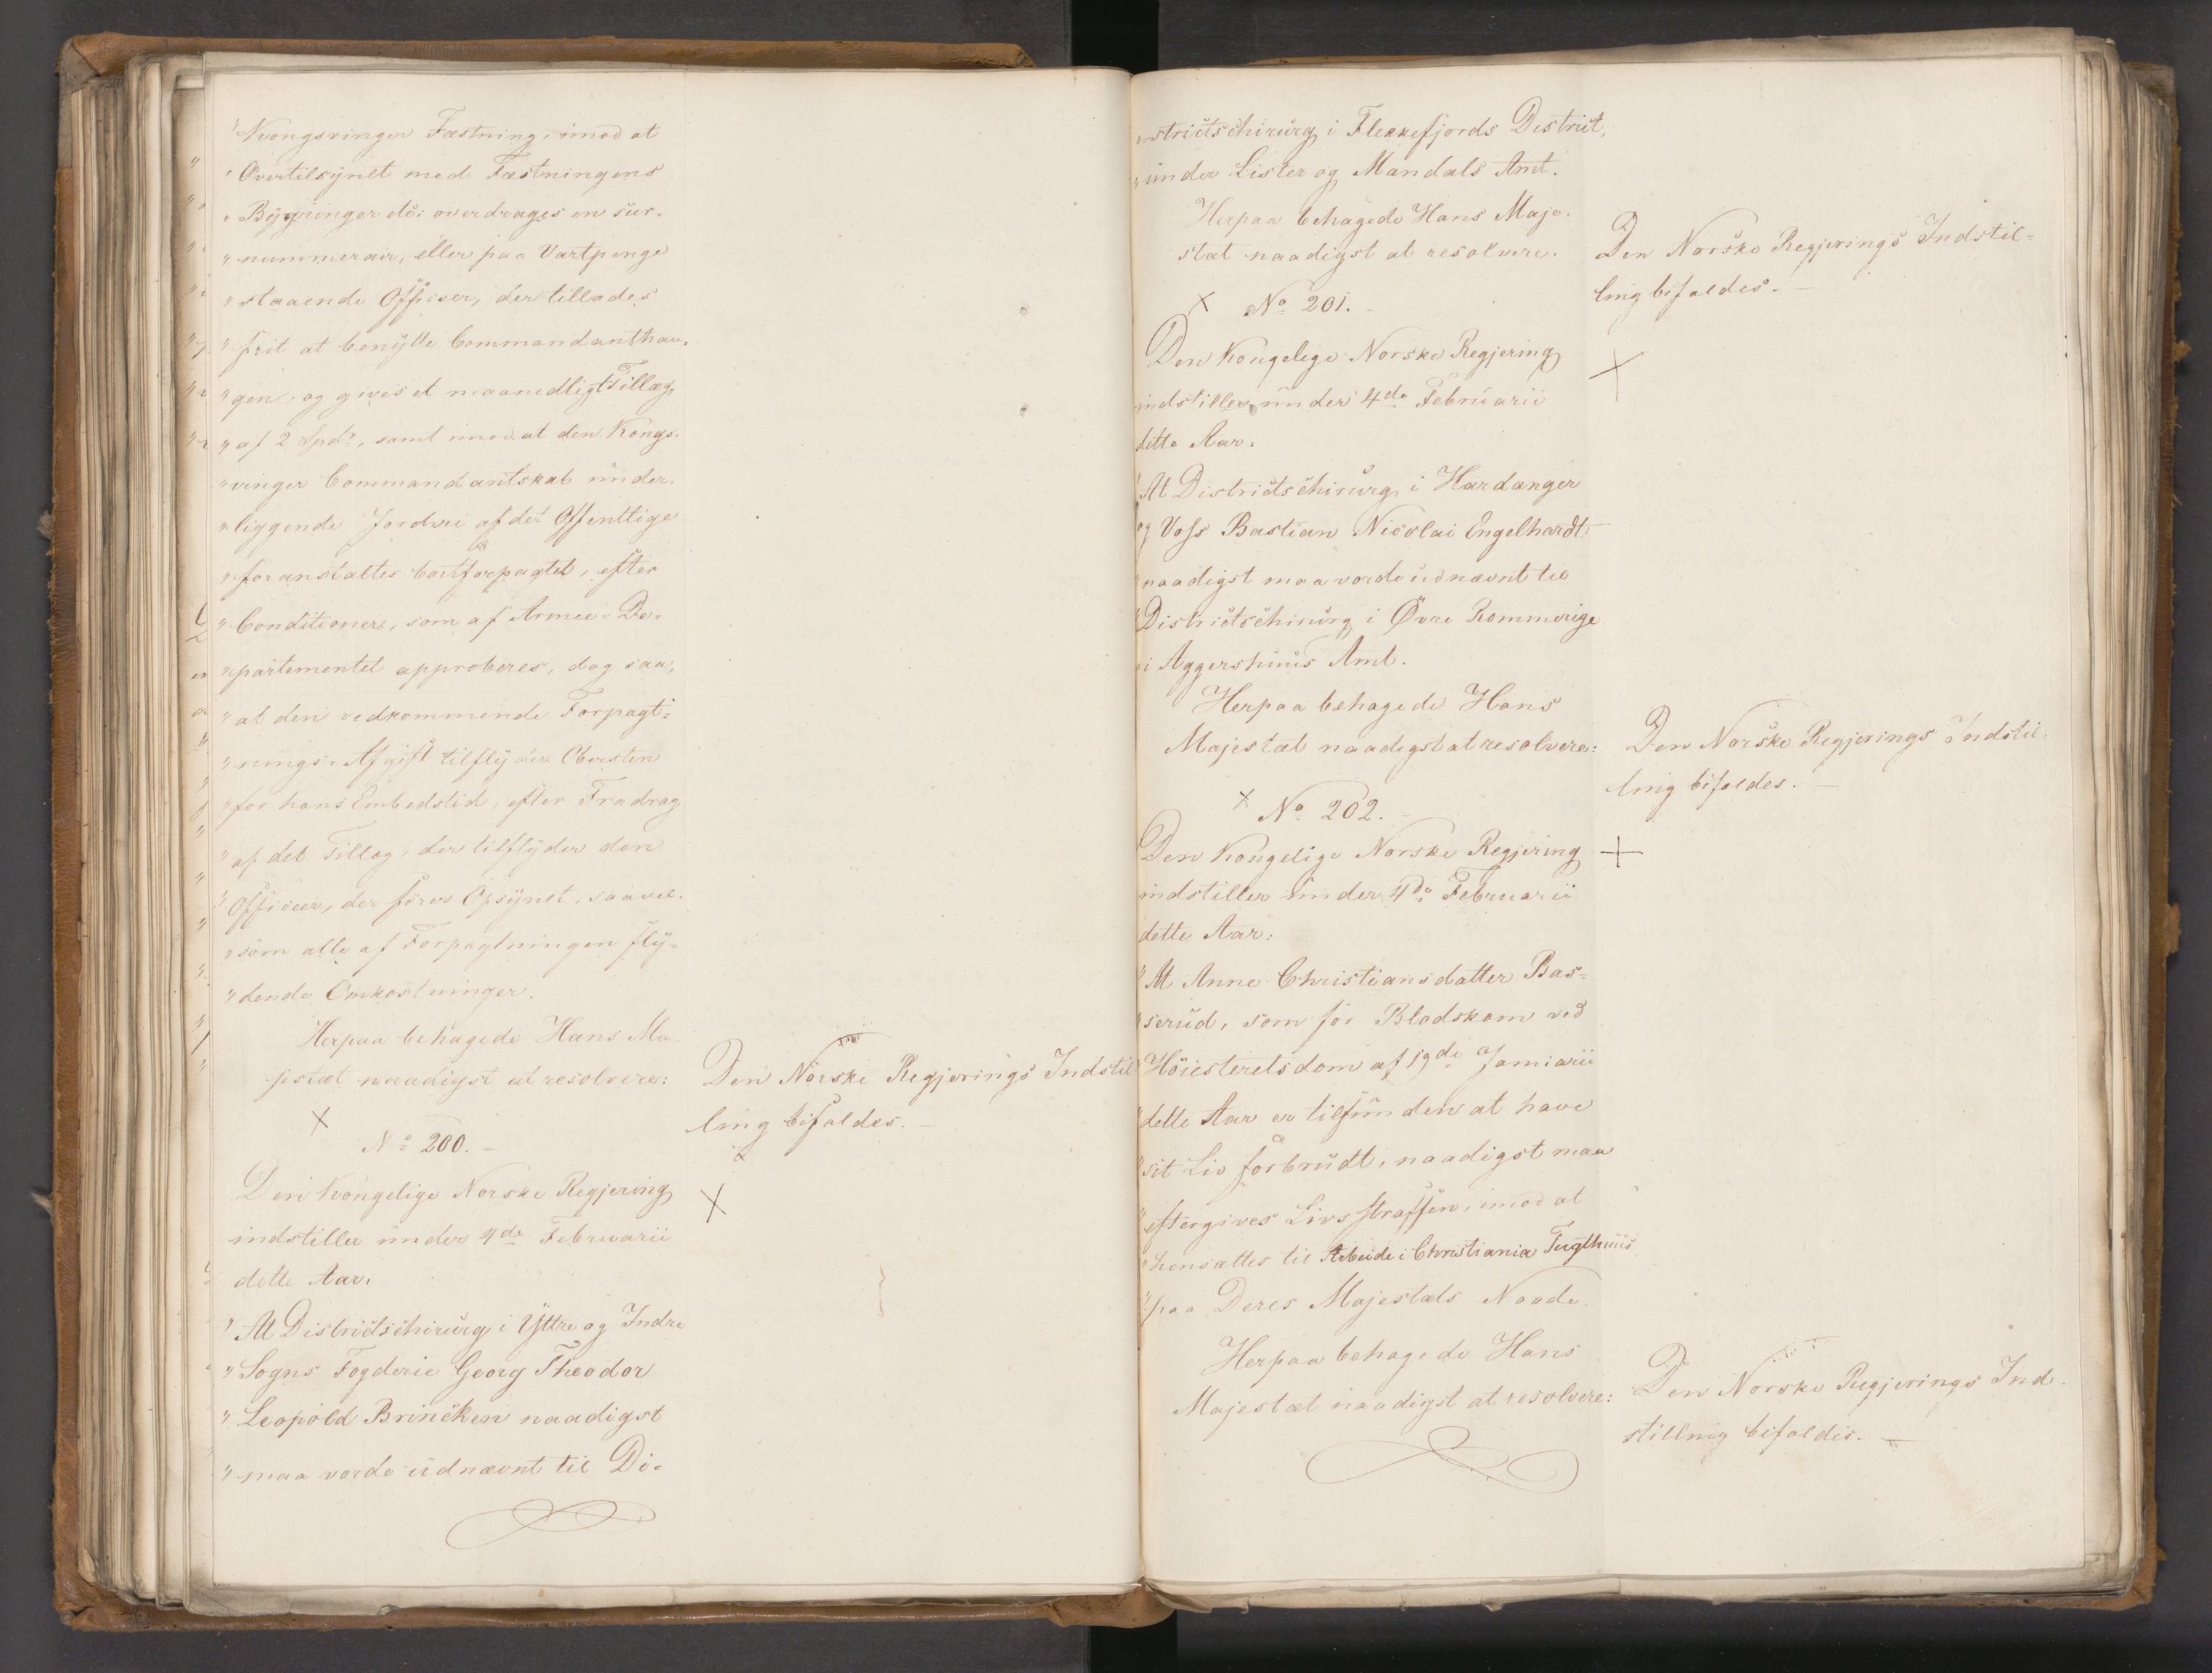 "Kongsvinger Fæstning, imod at
"Overtilsÿnet med Fæstningens
"Bÿgninger etc: overdrages en sur-
"nummerair, eller paa Vartpenge
"staaende Officer, der tillades
"frit at benÿtte Commandanthau-
"gen, og gives et maanedligt Tillæg
"af 2 Spdr, samt imod at den Kongs-
"vinger Commandantskab under-
"liggende Jordvei af det Offentlige
"foranstaltes bortforpagtet, efter
"Conditioner, som af Armee-De-
"partementet approberes, dog saa,
"at den vedkommende Forpagt-
"nings-Afgift tilflÿder Obersten
"for hans Embedstid, efter Fradrag
"af det Tillæg, der tilflÿder den
"Officeer, der förer Opsÿnet, saavel-
"som alle af Forpagtningen flÿ-
"dende Omkostninger.
Herpaa behagede Hans Ma-
jestæt naadigst at resolvere:
Den Norske Regjerings Indstil-
ling bifaldes.
No 200.
Den Kongelige Norske Regjering
indstiller under 4de Februarii
dette Aar.
"At Districtschirurg i Ÿttre og Indre
"Sogns Fogderie Georg Theodor
"Leopold Brincken naadigst
"maa vorde udnævnt til Di-
"strictschirurg i Flekkefjords District,
"under Lister og Mandals Amt.
Herpaa behagede Hans Maje-
stæt naadigst at resolvere.
Den Norske Regjerings Indstil-
ling bifaldes.
No 201.
Den Kongelige Norske Regjering
indstiller under 4de Februarii
dette Aar.
"At Districtschirurg i Hardanger
og Voss Bastian Nicolai Engelhardt
"naadigst maa vorde udnævnt til
"Districtschirurg i Øvre Rommerige
"i Aggershuus Amt.
Herpaa behagede Hans
Majestæt naadigst at resolvere:
Den Norske Regjerings Indstil-
ling bifaldes.
No 202.
Den Kongelige Norske Regjering
indstiller under 4de Februarii
dette Aar:
"At Anne Christiansdatter Bas-
"serud, som for Blodskam ved
"Höiesteretsdom af 19de Januarii
"dette Aar er tilfunden at have
"sit Liv forbrudt, naadigst maa
"eftergives Livsstraffen, imod at
"hensættes til Arbeide i Christiania Tugthuus
"paa Deres Majestæts Naade.
Herpaa behagede Hans
Majestæt naadigst at resolvere:
Den Norske Regjerings Ind-
stilling bifaldes.